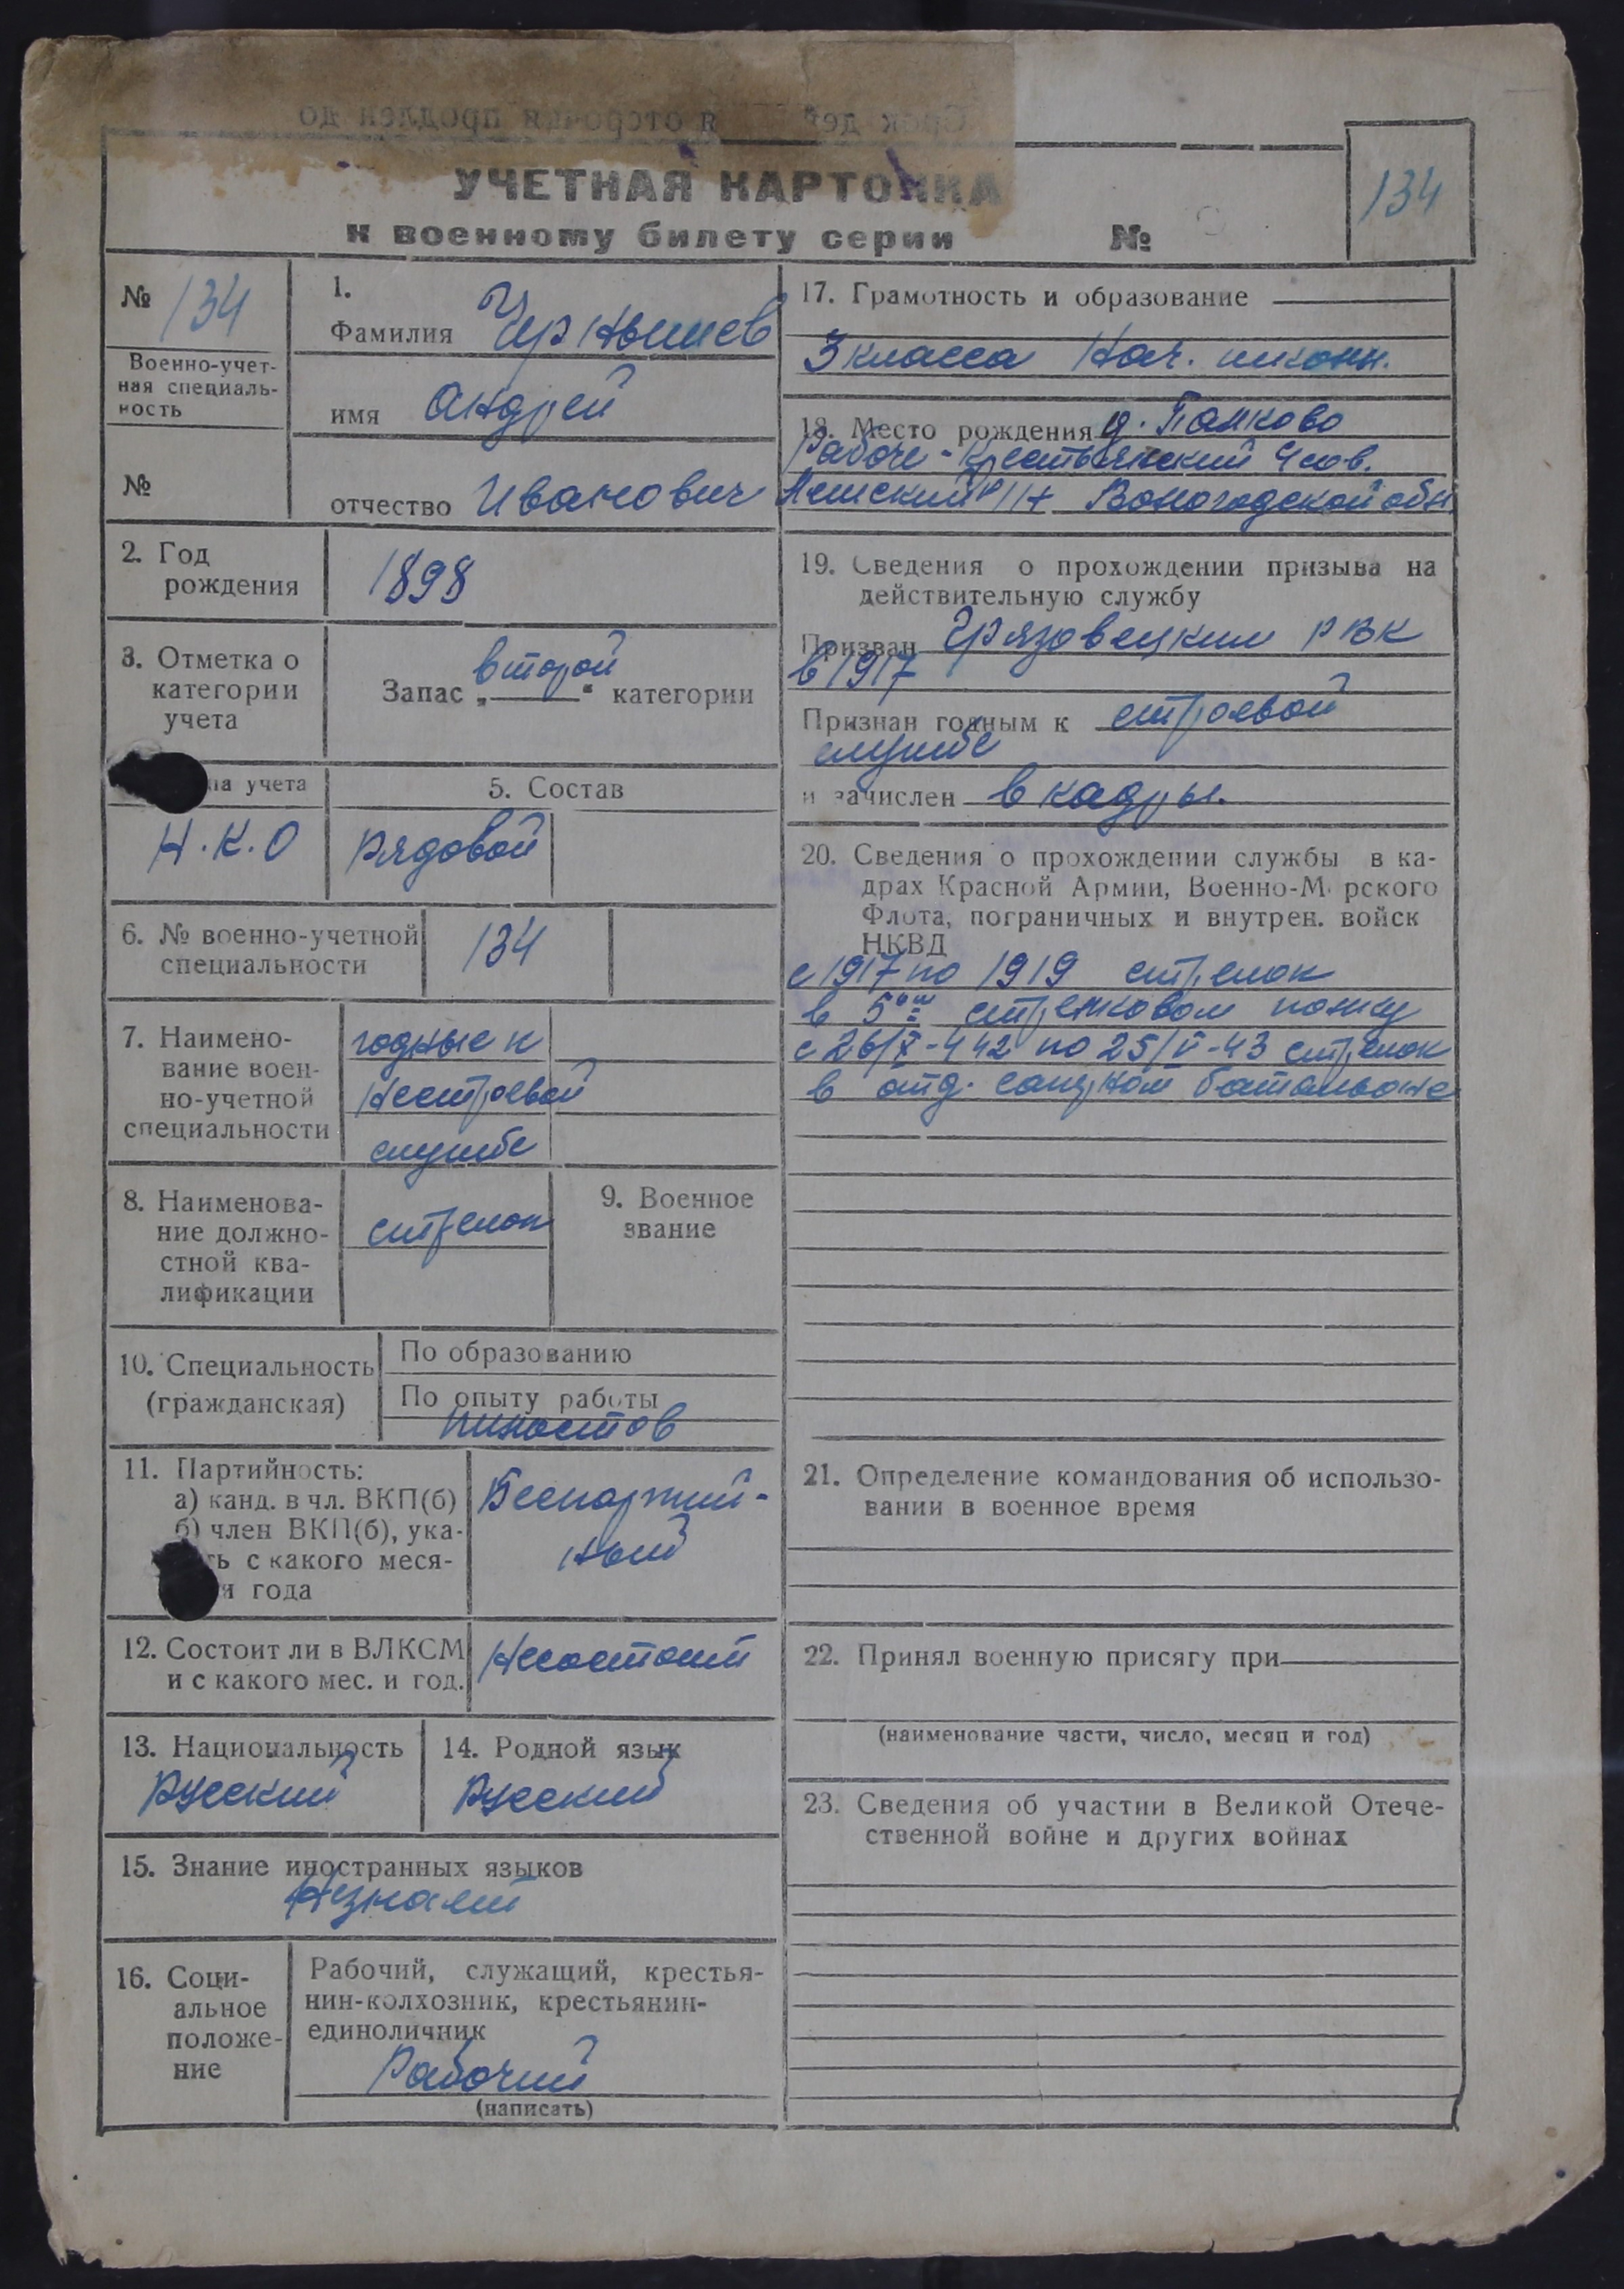 УЧЕТНАЯ КАРТОЧКА
к военному билету серии №
134
№ 134
Военно-учет-
ная специаль-
ность
№
1.
Фамилия Чернышев
имя Андрей
отчество Иванович
2. Год
рождения
1898
3. Отметка о
категории
учета
Запас „второй“ категории
на учета
Н.К.О
5. Состав
рядовой
6. № военно-учетной
специальности
134
7. Наимено-
вание воен-
но-учетной
специальности
годные к
нестроевой
службе
8. Наименова-
ние должно-
стной ква-
лификации
стрелок
9. Военное
звание
10. Специальность
(гражданская)
По образованию
По опыту работы
11. Партийность:
а) канд. в чл. ВКП(б)
б) член ВКП(б), ука-
ть с какого меся-
и года
Беспартий-
ный
12. Состоит ли в ВЛКСМ
и с какого мес. и год.
Несостоит
13. Национальность
Русский
14. Родной язык
Русский
15. Знание иностранных языков
Незнает
16. Соци-
альное
положе-
ние
Рабочий, служащий, крестья-
нин-колхозник, крестьянин-
единоличник
Рабочий
(написать)
17. Грамотность и образование
3 класса Нач. школы.
18. Место рождения д. Панково
Рабоче-Крестьянский Чсов.
Лежский р/н Вологодской обл.
19. Сведения о прохождении призыва на
действительную службу
Призван Грязовецким РВК
в 1917
Признан годным к строевой
службе
и зачислен в кадры.
20. Сведения о прохождении службы в ка-
драх Красной Армии, Военно-М рского
Флота, пограничных и внутрен. войск
НКВД
с 1917 по 1919 стрелок
в 5ом стрелковом полку
с 26/X-442 по 25/V-43 стрелок
в отд. батальоне
21. Определение командования об использо-
вании в военное время
22. Принял военную присягу при
(наименование части, число, месяц и год)
23. Сведения об участии в Великой Отече-
ственной войне и других войнах